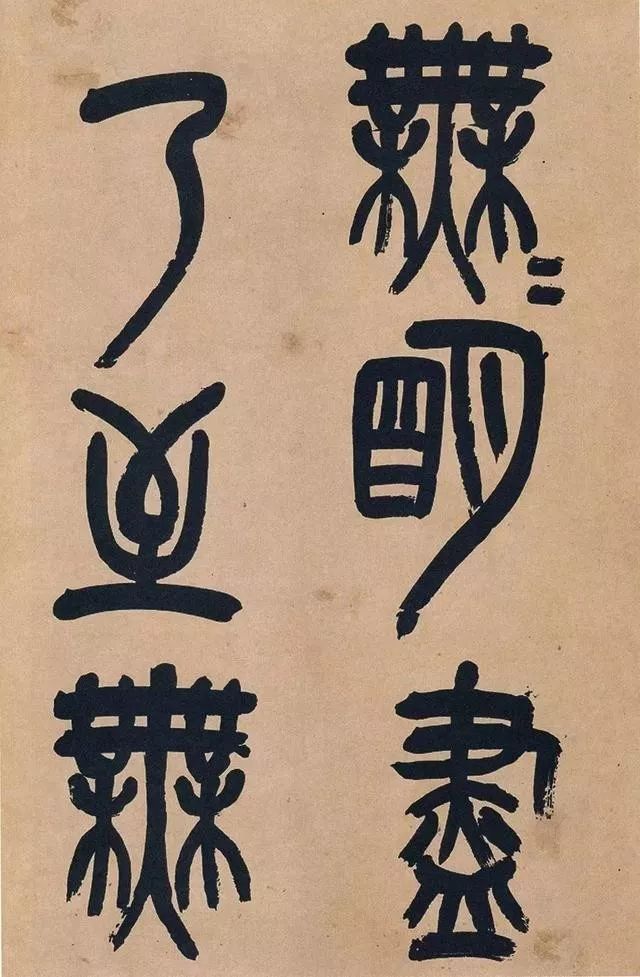 無〻明盡
乃至無